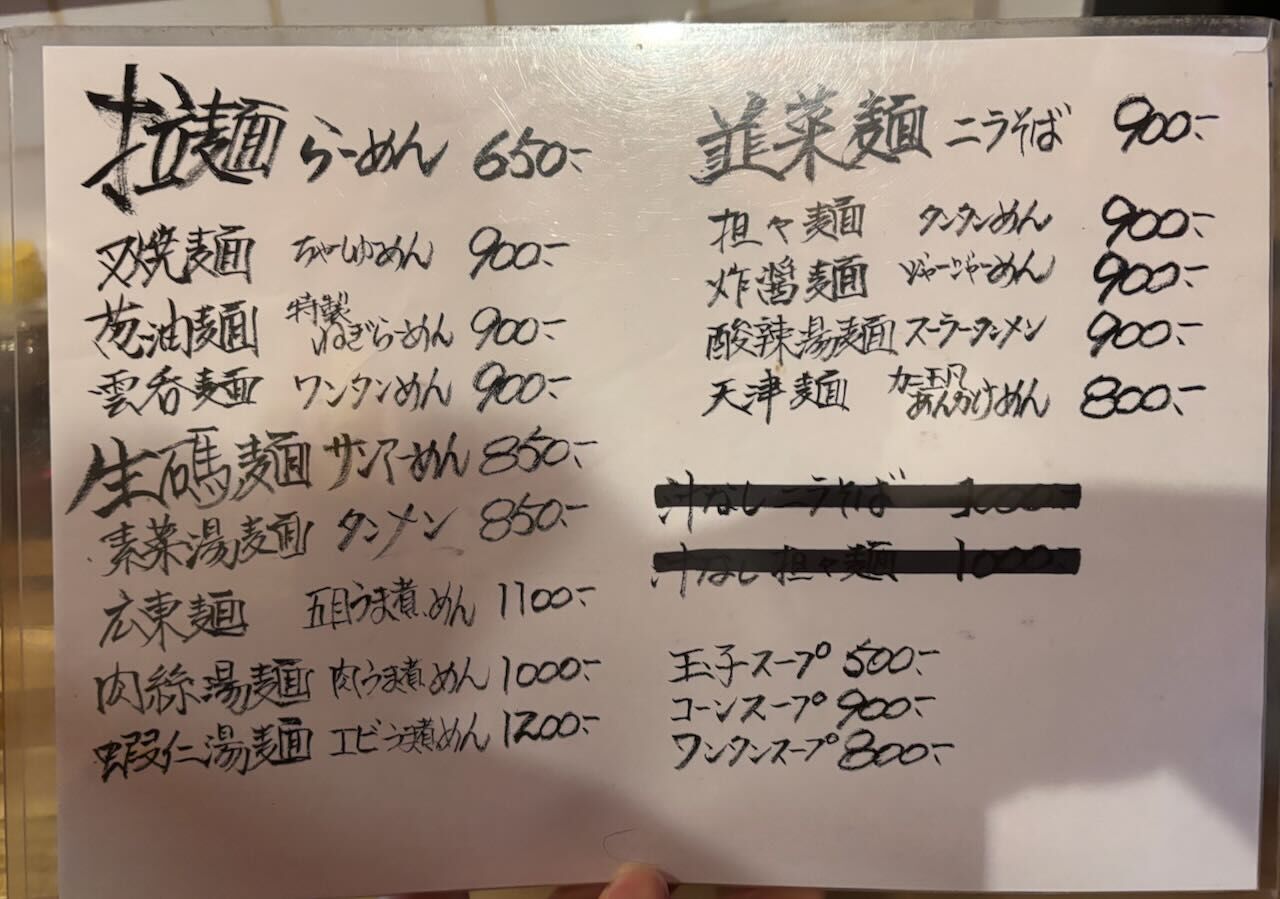 拉麺 らーめん 650.-
叉焼麺 ちゃーしゅーめん 900.-
葱油麺 特製ねぎらーめん 900.-
雲呑麺 ワンタンめん 900.-
生碼麺 サンマーめん 850.-
素菜湯麺 タンメン 850.-
広東麺 五目うま煮めん 1100.-
肉絲湯麺 肉うま煮めん 1000.-
蝦仁湯麺 エビうま煮めん 1200.-
韮菜麺 ニラそば 900.-
担々麺 タンタンめん 900.-
炸醤麺 ジャージャーめん 900.-
酸辣湯麺 スーラータンメン 900.-
天津麺 カニ玉風あんかけめん 800.-
汁なしニラそば 1000.-
汁なし担々麺 1000.-
玉子スープ 500.-
コーンスープ 900.-
ワンタンスープ 800.-